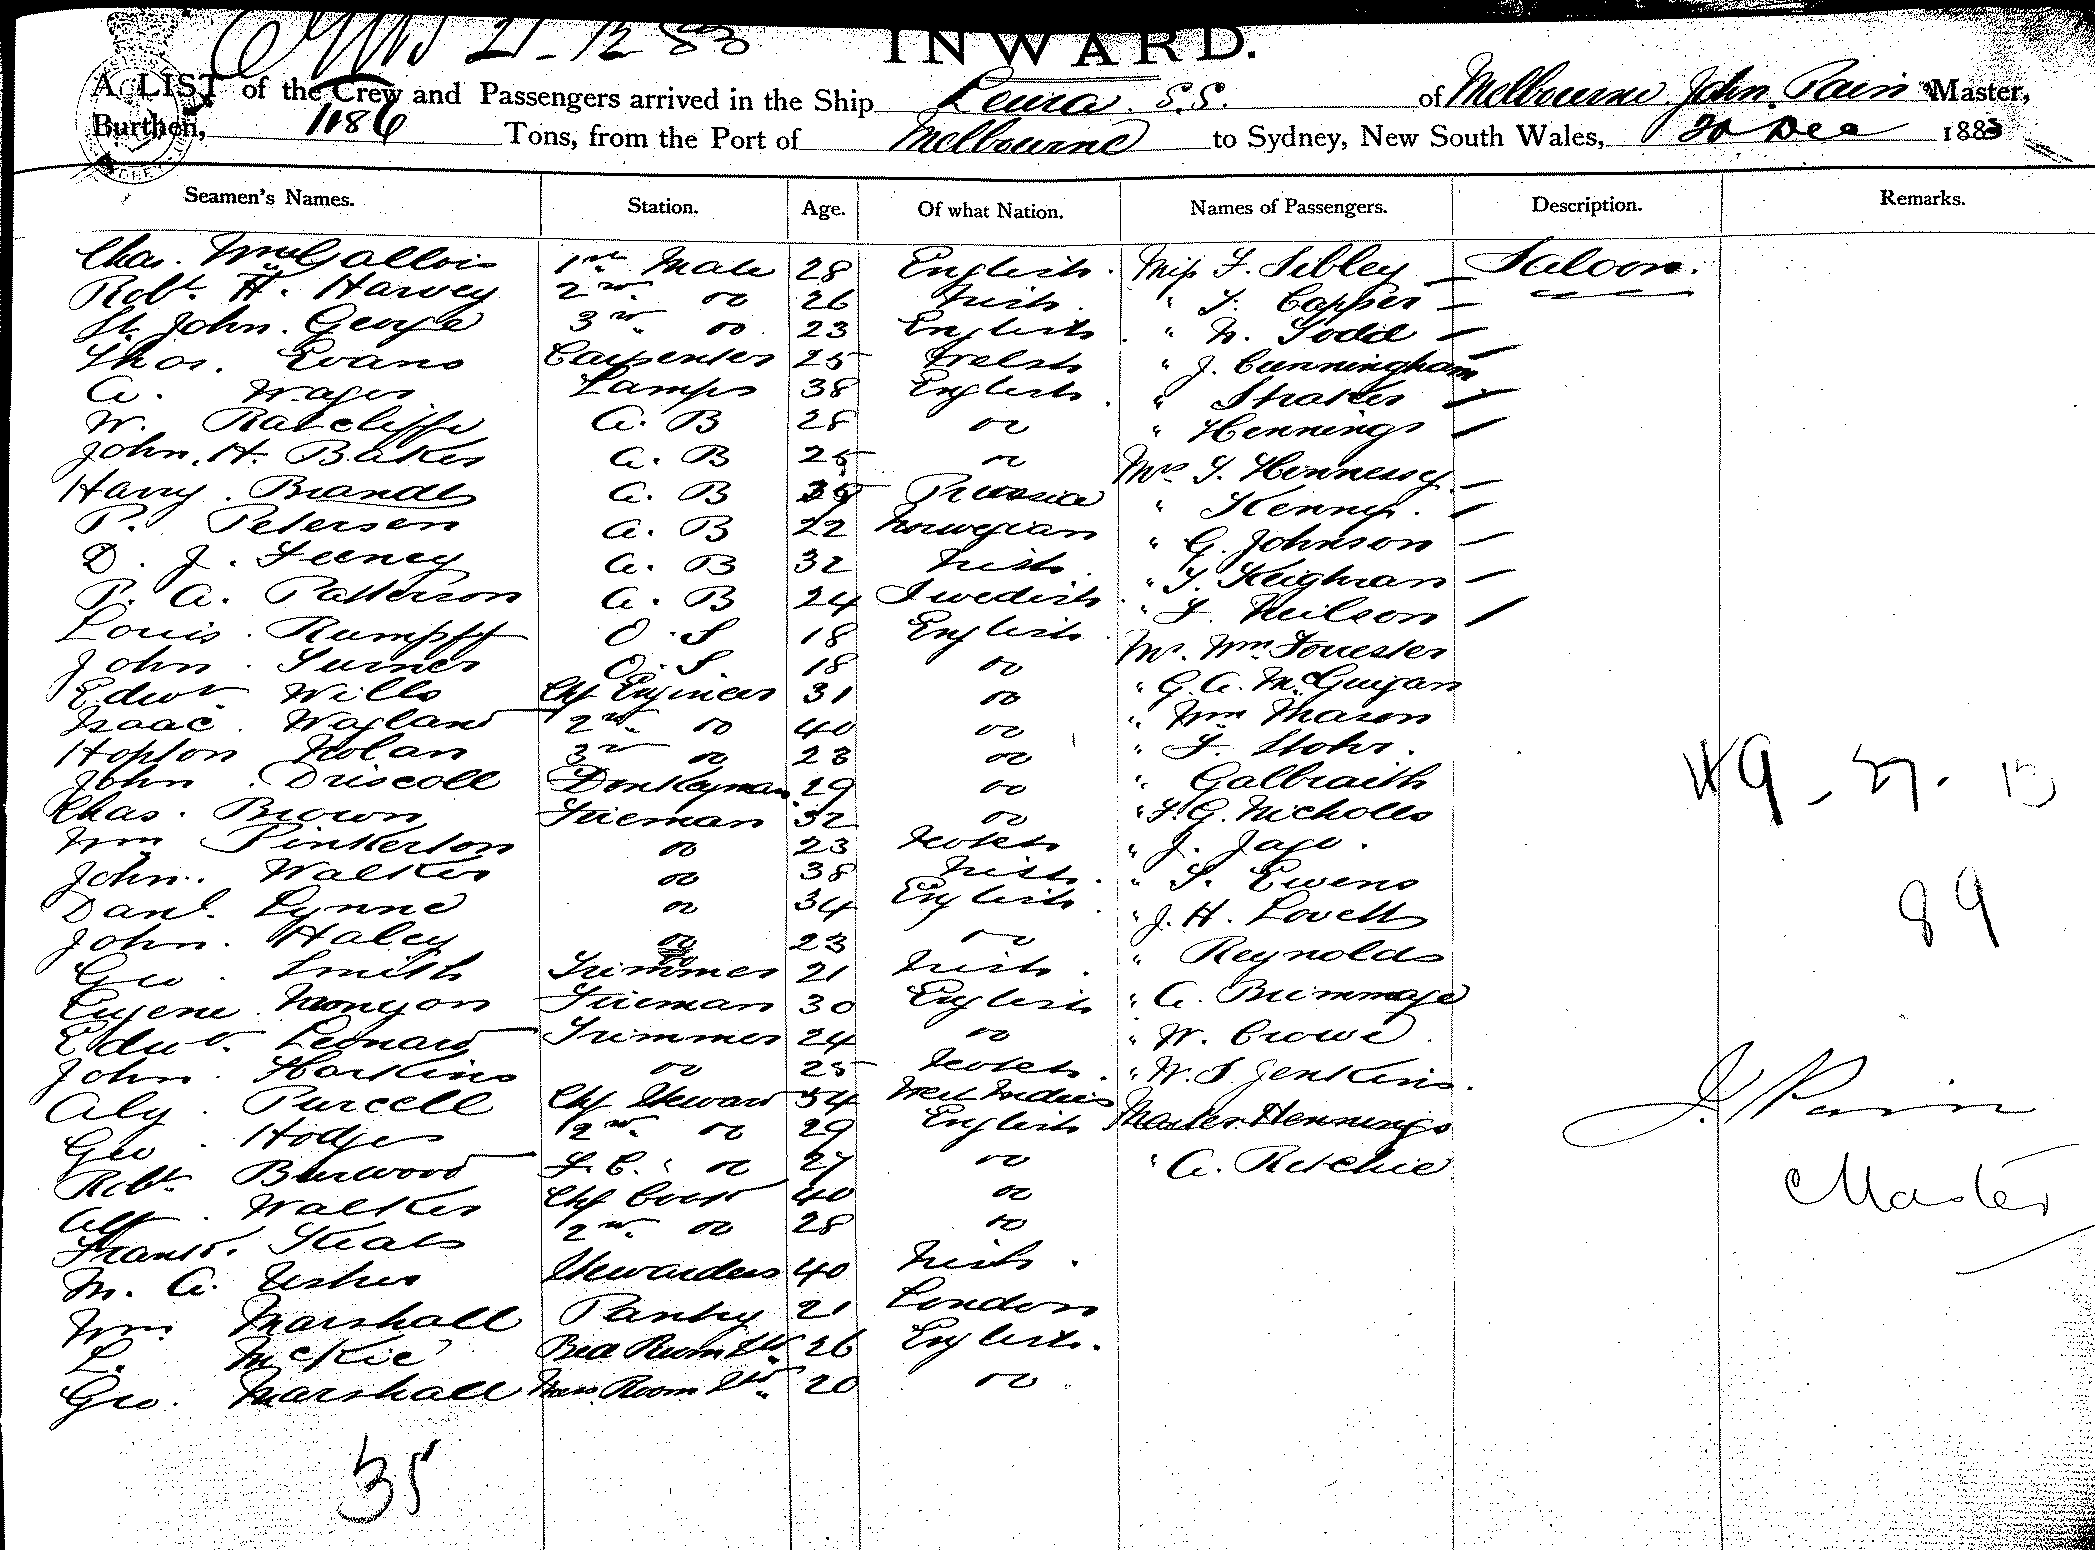 21-12 83
INWARD.
A LIST of the Crew and Passengers arrived in the Ship Leura S.S. of Melbourne John Pain Master,
Burthen, 1186 Tons, from the Port of Melbourne to Sydney, New South Wales, 20 Dec 1883
Seamen's Names. Station. Age. Of what Nation. Names of Passengers. Description. Remarks.
Chas. Wm Gallois 1st Mate 28 English. Miss F. Sibley Saloon.
Robt. H. Harvey 2nd do 26 Irish. " T. Capper
St. John. George 3rd do 23 English " N. Todd
Thos. Evans Carpenter 25 Welsh " J. Cunningham
A. Wager Lamps 38 English " Straker
W. Ratcliffe A. B 28 do " Hennings
John. H. Baker A. B 25 do Mrs T. Honnessy
Harry. Brandes A. B 35 Prussia " Kenny.
P. Petersen A. B 22 Norwegian " G. Johnson
D. J. Feeney A. B 32 Irish. " T. Keighran
P. A. Patterson A. B 24 Swedish " F. Neilson
Louis. Rumpff O. S 18 English Mr. Wm Forrester
John. Turner O. S. 18 do " G. A. McGuigan
Edwd Wills Chf Engineer 31 do " Wm Mason
Isaac. Wagland 2nd do 40 do " F. Stohr.
Hopton Nolan 3rd do 28 do " Galbraith
John. Driscoll Donkeyman 29 do " F. G. Nicholls
Chas. Brown Fireman 32 do " J. Jago.
Wm Pinkerton do 23 Scotch " S. Ewens
John. Walker do 38 Irish. " J. H. Lovett
Danl. Lynne do 34 English. " Reynolds
John. Haley do 23 do " A. Brimmage
Geo. Smith Trimmer 21 Irish. " W. Crowe
Eugene Monyon Fireman 30 English " W. S. Jenkins.
Edwd. Leonard Trimmer 24 do Master Hennings
John. Harkins do 25 Scotch. " A. Ritchie
Aly. Purcell Chf Steward 54 West Indies
Geo. Hodge 2nd do 29 English
Robt. Burwood F. C. do 27 do
Alf. Walker Chf Cook 40 do
Frank. Keats 2nd do 28 do
M. A. Usher Stewardess 40 Irish.
Wm. Marshall Pantry 21 London
L. McKie Bed Room Std 26 English.
Geo. Marshall Mess Room Std 20 do
35
49 - 27. 13
89
J. Pain
Master